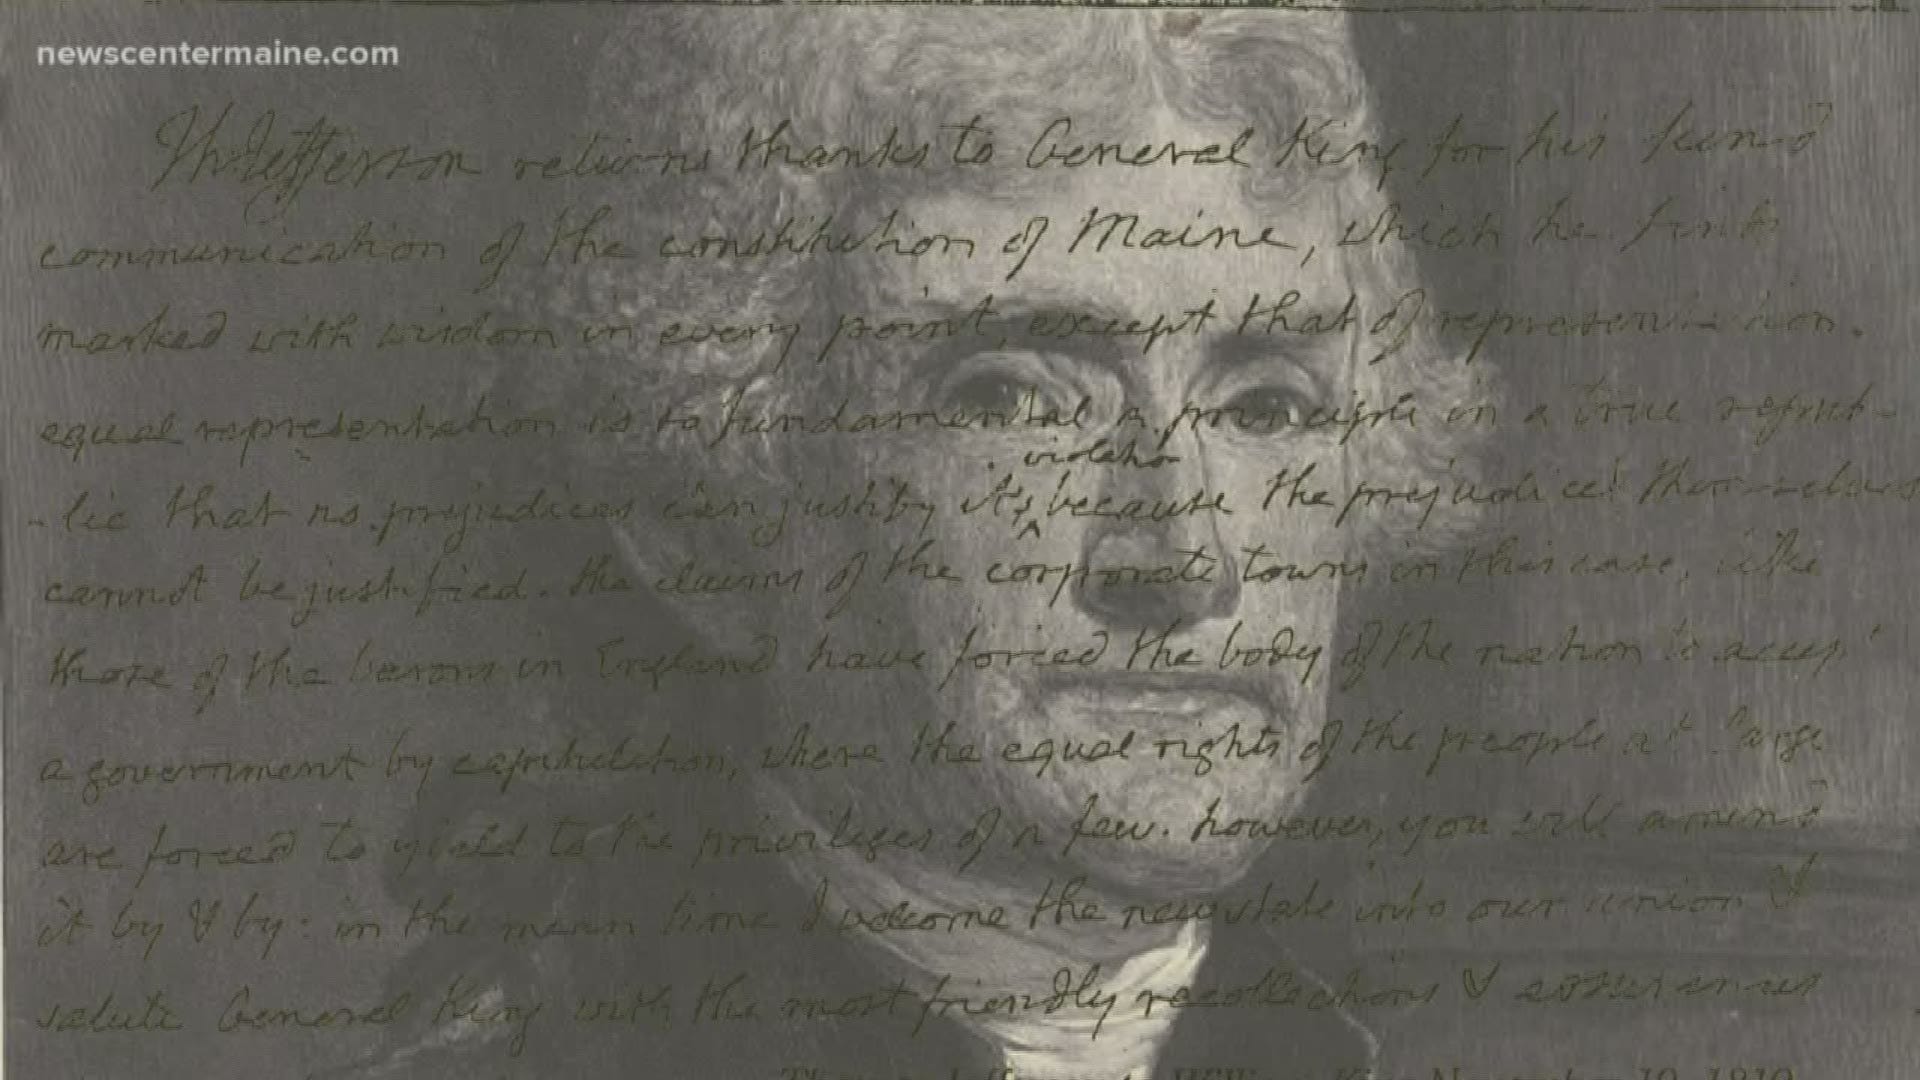 newscentermaine.com
Th Jefferson returns thanks to General King for his kind
communication of the constitution of Maine, which he finds
marked with wisdom in every point, except that of representation.
equal representation is so fundamental a principle in a true repub-
violation
-lic that no prejudices can justify its because the prejudices themselves
cannot be justified. the claims of the corporate towns in this case, like
those of the barons in England have forced the body of the nation to accept
a government by capitulation, where the equal rights of the people at large
are forced to yield to the privileges of a few. however, you will amend
it by & by: in the mean time I welcome the new state into our union &
salute General King with the most friendly recollections & assurances
November 19, 1819